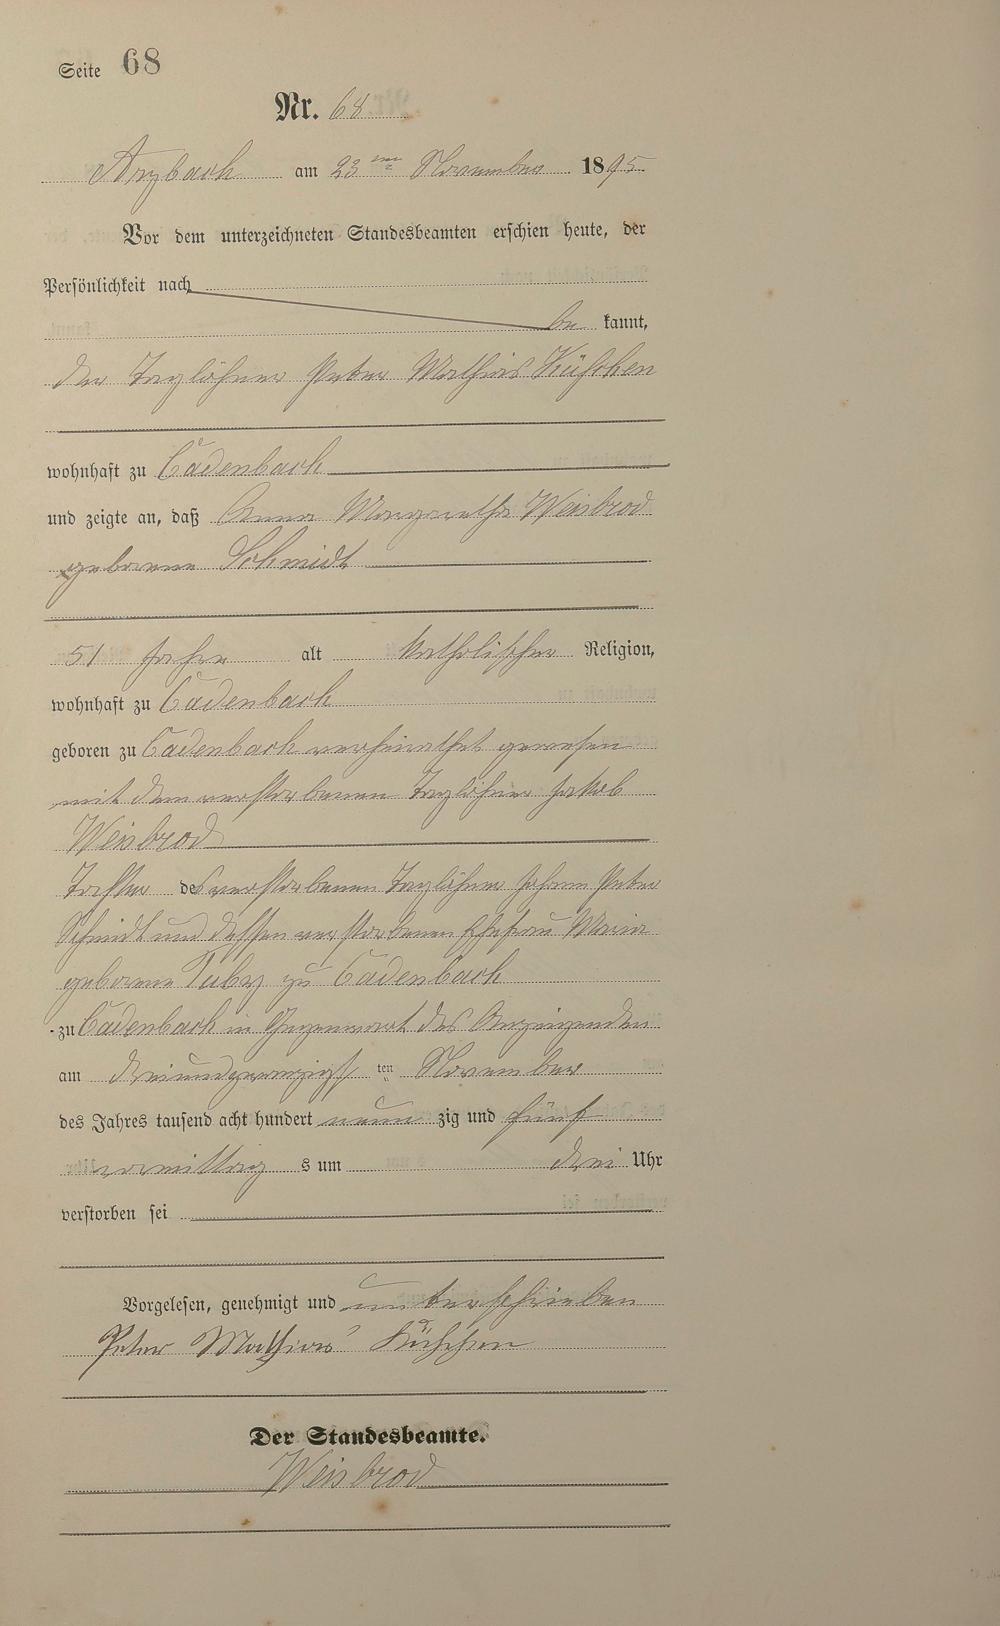 Seite 68
Nr. 68
Arzbach am 23ten November 1895
Vor dem unterzeichneten Standesbeamten erschien heute, der
Persönlichkeit nach
be kannt,
der Taglöhner Peter Mathias
wohnhaft zu Cadenbach
und zeigte an, daß Anna Margaretha Weisbrod
geborene Schmidt
51 Jahre alt katholischer Religion,
wohnhaft zu Cadenbach
geboren zu Cadenbach verheirathet gewesen
mit dem verstorbenen Taglöhner Jakob
Weisbrod
Tochter des verstorbenen Taglöhner Johann Peter
Schmidt und dessen verstorbenen Ehefrau Maria
geborene zu Cadenbach
zu Cadenbach in Gegenwart des Anzeigenden
am dreiundzwanzigsten November
des Jahres tausend acht hundert neun zig und fünf
vormittag s um drei Uhr
verstorben sei
Vorgelesen, genehmigt und unterschrieben
Peter Mathias
Der Standesbeamte.
Weisbrod